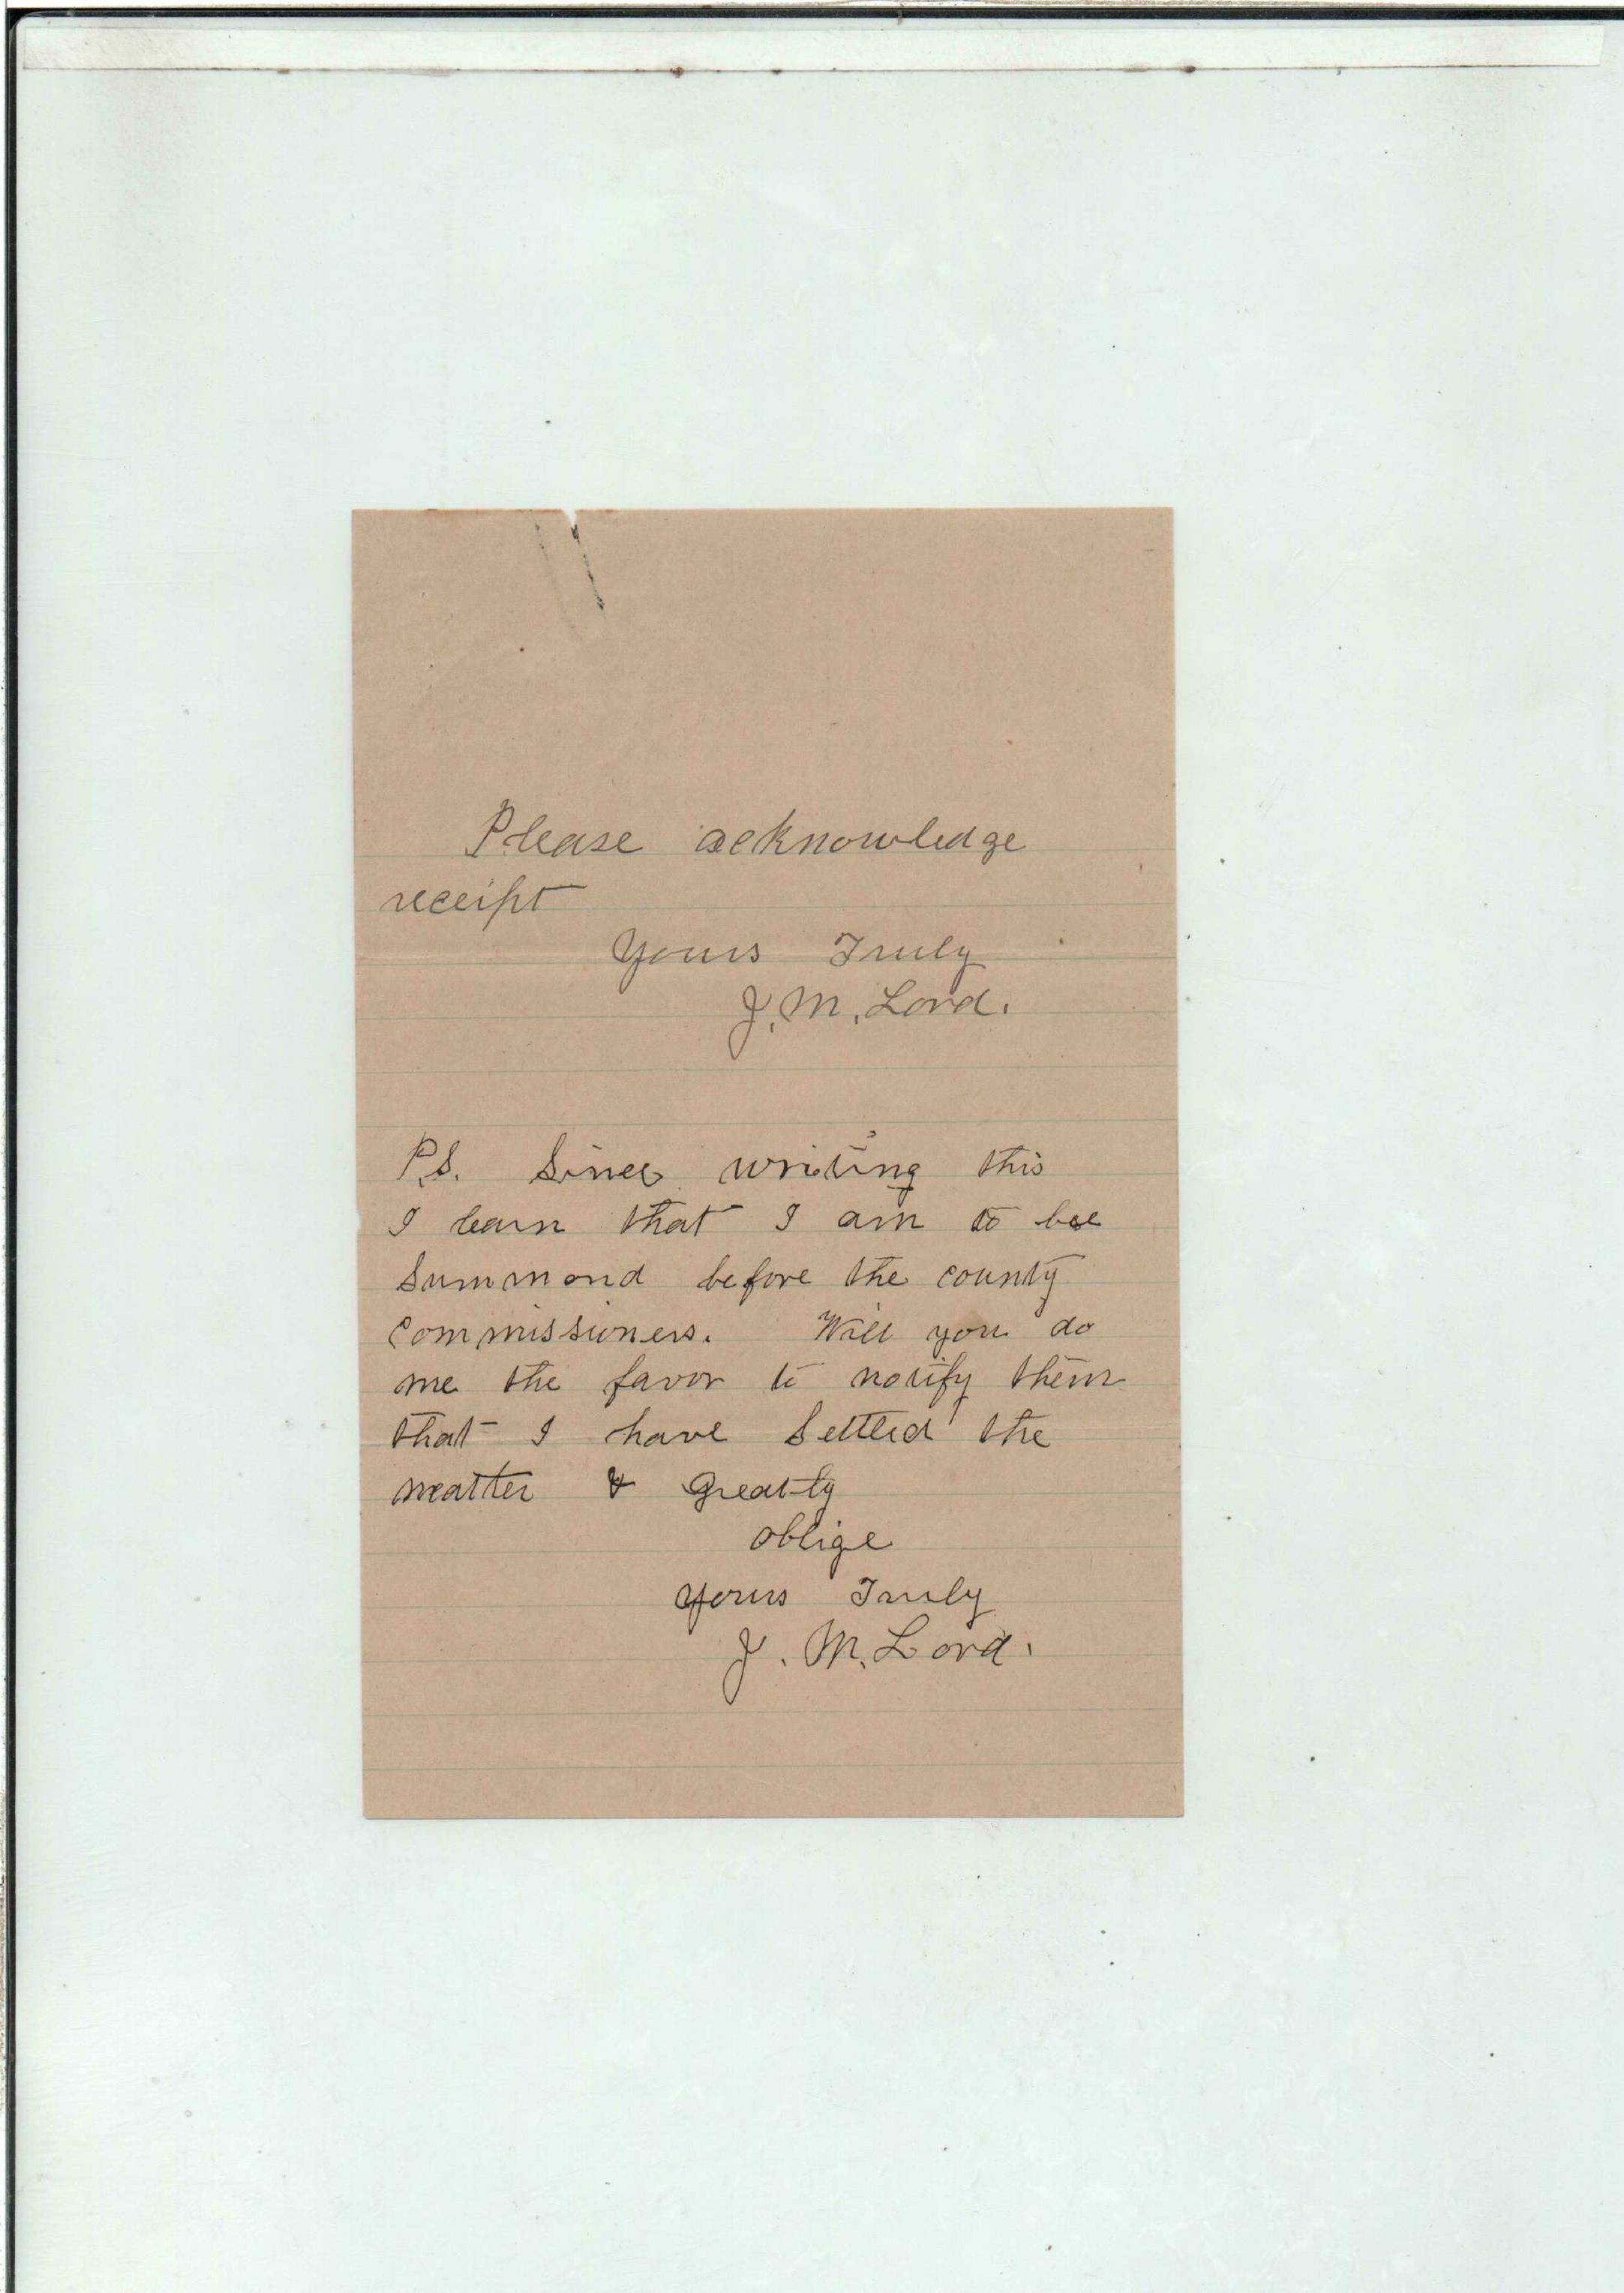 Please acknowledge
receipt
Yours Truly
J. M. Lord.
P.S. Since writing this
I learn that I am to be
Summond before the county
commissioners. Will you do
me the favor to notify them
that I have Settled the
matter & greatly
oblige
Yours Truly
J. M. Lord.